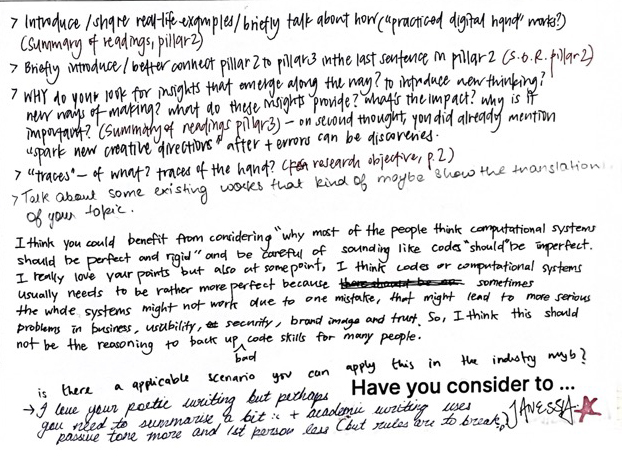 > Introduce/share real-life examples/briefly talk about how ("practiced digital hand" works?)
(Summary of readings, pillar 2)
> Briefly introduce/better connect pillar 2 to pillar 3 in the last sentence in pillar 2 (S.O.R. pillar 2)
> WHY do you look for insights that emerge along the way? to introduce new thinking?
new ways of making? what do these insights provide? what's the impact? why is it
important? (Summary of readings pillar 3) – on second thought, you did already mention
"spark new creative directions" after + errors can be discoveries.
> "traces" – of what? traces of the hand? (research objective, p.2)
> Talk about some existing works that kind of maybe show the translation
of your topic.
I think you could benefit from considering "why most of the people think computational systems
should be perfect and rigid" and be careful of sounding like codes "should" be imperfect.
I really love your points but also at some point, I think codes or computational systems
usually needs to be rather more perfect because sometimes
the whole systems might not work due to one mistake, that might lead to more serious
problems in business, usability, security, brand image and trust. So, I think this should
not be the reasoning to back up bad code skills for many people.
is there a applicable scenario you can apply this in the industry myb?
Have you consider to ...
→ I love your poetic writing but perhaps
you need to summarise a bit :: + academic writing uses
passive tone more and 1st person less (but rules are to break)
JANESSA